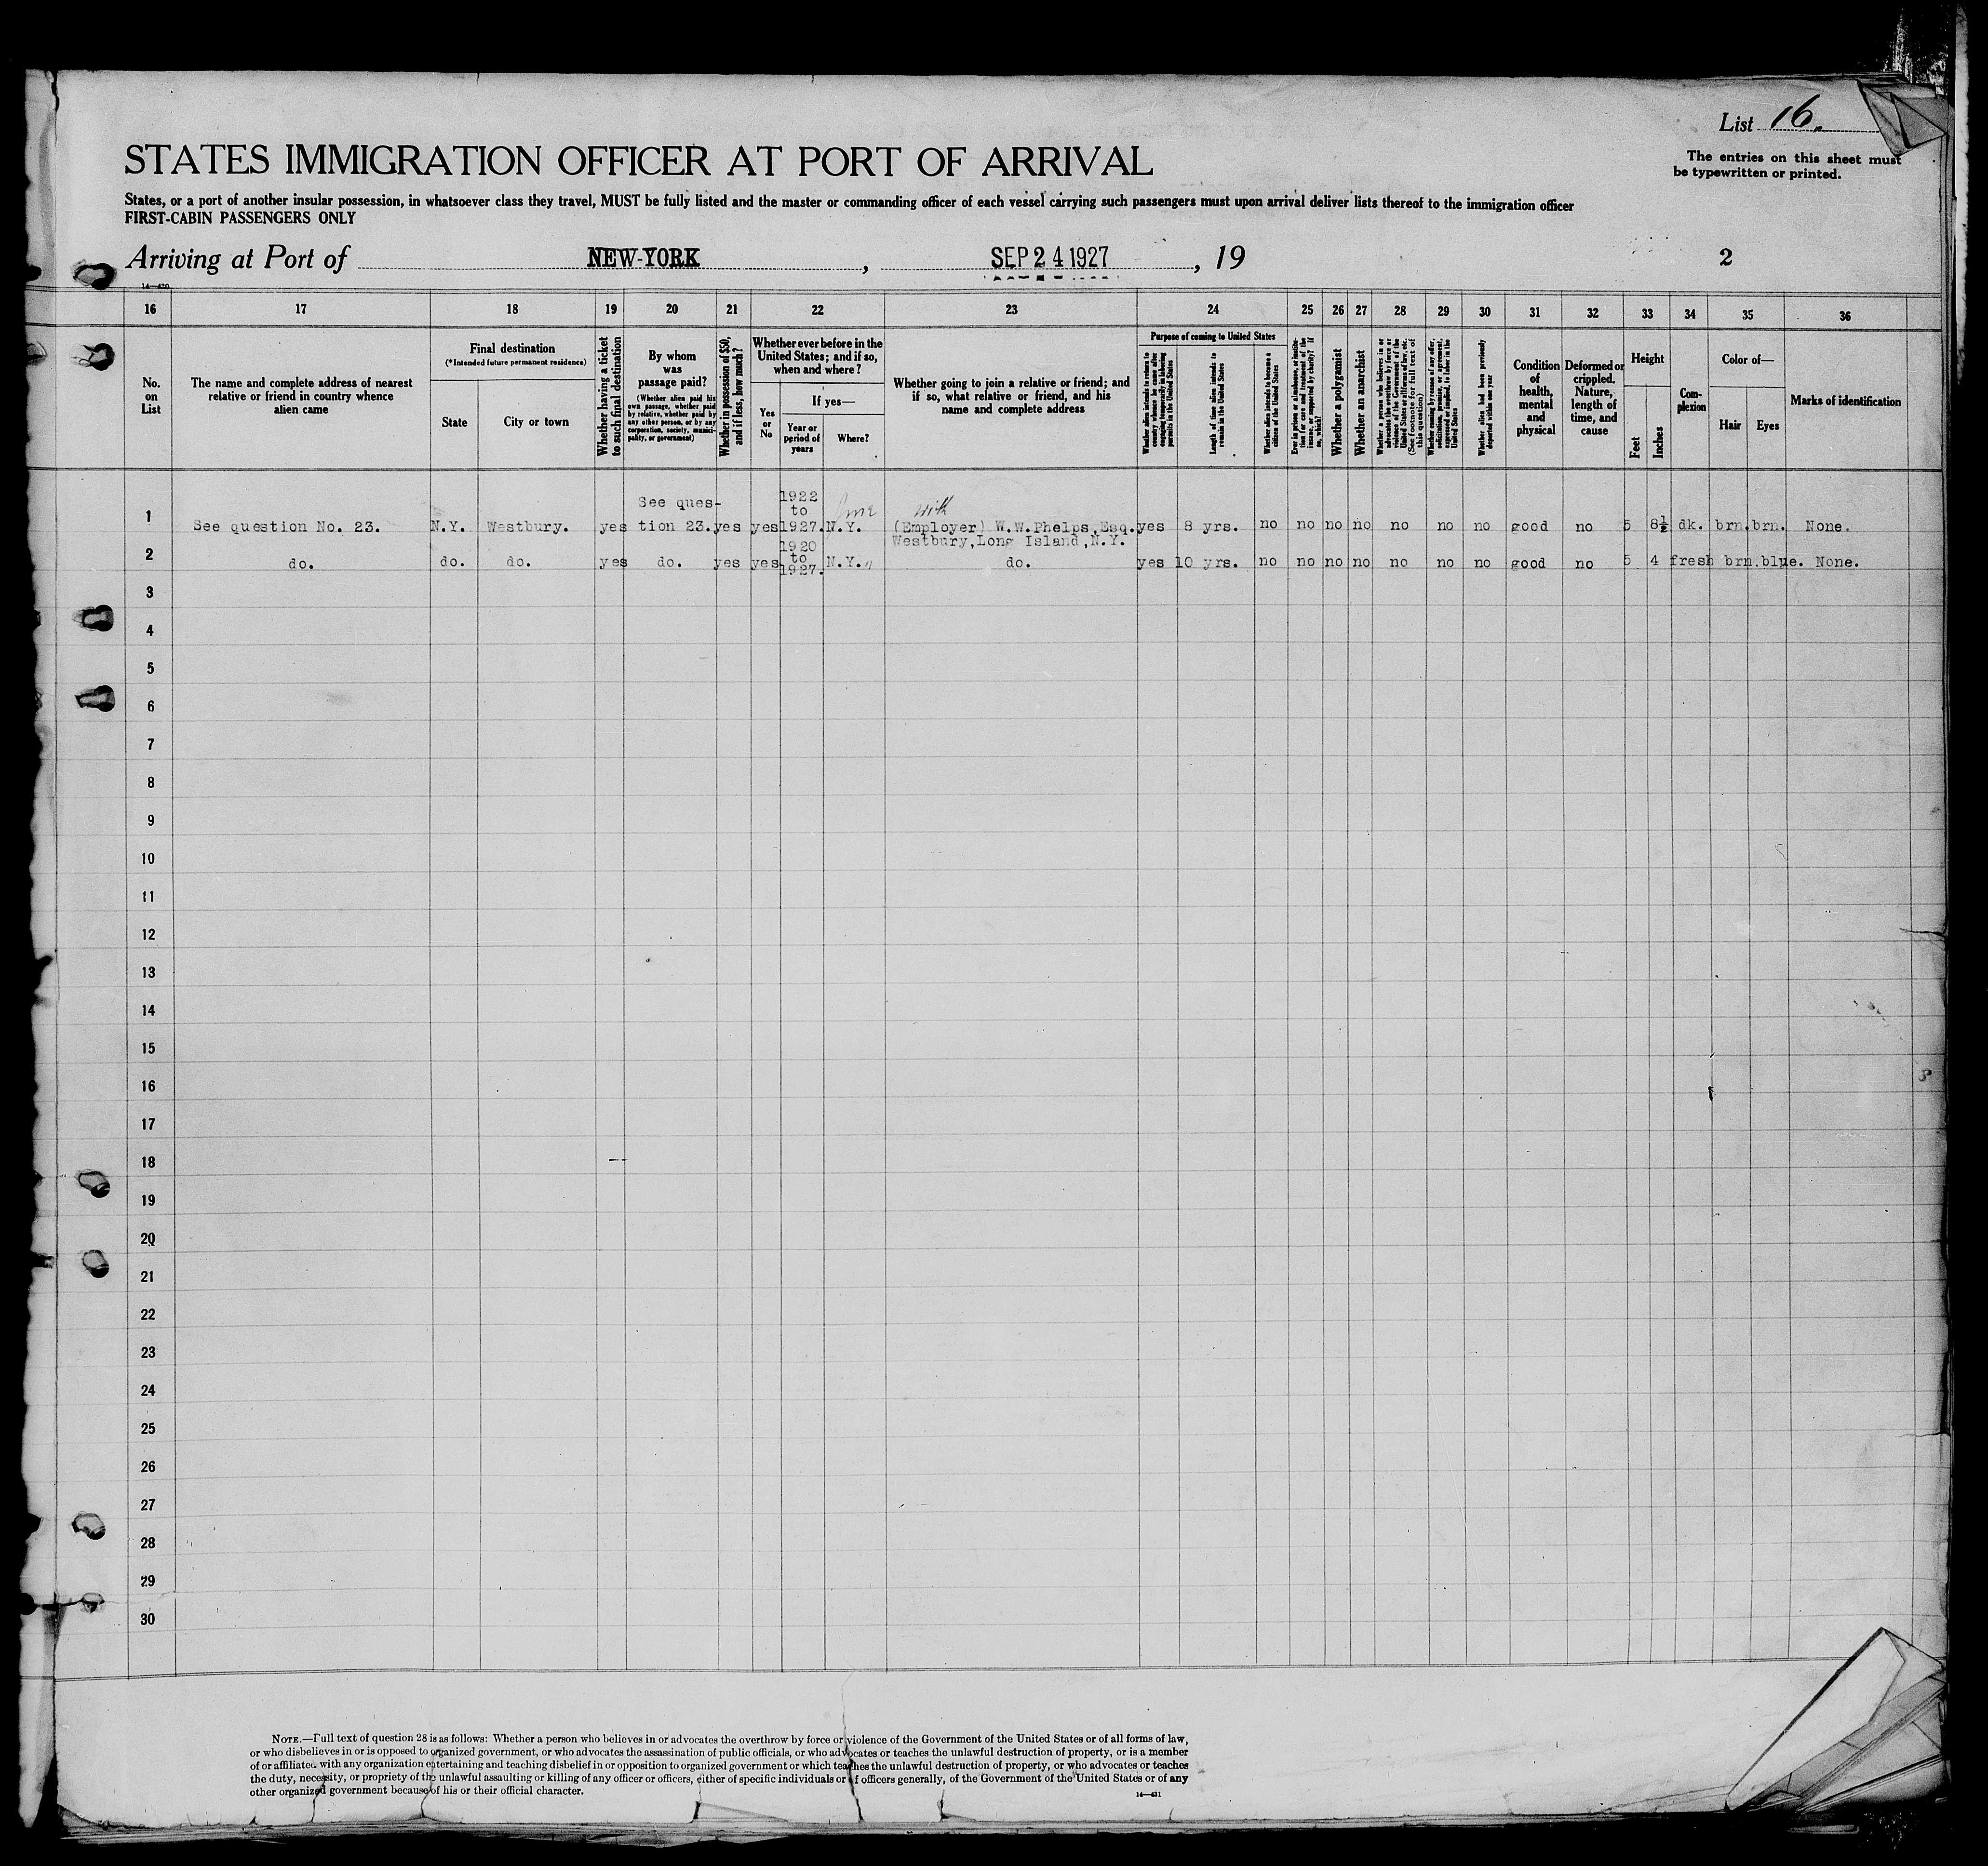 List 16.
The entries on this sheet must
be typewritten or printed.
STATES IMMIGRATION OFFICER AT PORT OF ARRIVAL
States, or a port of another insular possession, in whatsoever class they travel, MUST be fully listed and the master or commanding officer of each vessel carrying such passengers must upon arrival deliver lists thereof to the immigration officer
FIRST-CABIN PASSENGERS ONLY
Arriving at Port of NEW-YORK, SEP 24 1927, 19
2
14—430
16 17 18 19 20 21 22 23 24 25 26 27 28 29 30 31 32 33 34 35 36
No. on List
The name and complete address of nearest relative or friend in country whence alien came
Final destination
(*Intended future permanent residence)
State
City or town
Whether having a ticket to such final destination
By whom was passage paid?
(Whether alien paid his own passage, whether paid by relative, whether paid by any other person, or by any corporation, society, municipality, or government)
Whether in possession of $50, and if less, how much?
Whether ever before in the United States; and if so, when and where?
Yes or No
If yes—
Year or period of years
Where?
Whether going to join a relative or friend; and if so, what relative or friend, and his name and complete address
Purpose of coming to United States
Whether alien intends to return to country whence he came after engaging temporarily in laboring pursuits in the United States
Length of time alien intends to remain in the United States
Whether alien intends to become a citizen of the United States
Ever in prison or almshouse, or institution for care and treatment of the insane, or supported by charity? If so, which?
Whether a polygamist
Whether an anarchist
Whether a person who believes in or advocates the overthrow by force or violence of the Government of the United States or all forms of law, etc. (See footnote for full text of this question)
Whether coming by reason of any offer, solicitation, promise, or agreement, expressed or implied, to labor in the United States
Whether alien had been previously deported within one year
Condition of health, mental and physical
Deformed or crippled. Nature, length of time, and cause
Height
Feet
Inches
Complexion
Color of—
Hair
Eyes
Marks of identification
1 See question No. 23. N.Y. Westbury. yes See question 23. yes yes 1922 to 1927. N.Y. with (Employer) W.W.Phelps,Esq. Westbury,Long Island,N.Y. yes 8 yrs. no no no no no no no good no 5 8½ dk. brn. brn. None.
2 do. do. do. yes do. yes yes 1920 to 1927. N.Y. " do. yes 10 yrs. no no no no no no no good no 5 4 fresh brn. blue. None.
3
4
5
6
7
8
9
10
11
12
13
14
15
16
17
18
19
20
21
22
23
24
25
26
27
28
29
30
NOTE.—Full text of question 28 is as follows: Whether a person who believes in or advocates the overthrow by force or violence of the Government of the United States or of all forms of law,
or who disbelieves in or is opposed to organized government, or who advocates the assassination of public officials, or who advocates or teaches the unlawful destruction of property, or is a member
of or affiliated with any organization entertaining and teaching disbelief in or opposition to organized government or which teaches the unlawful destruction of property, or who advocates or teaches
the duty, necessity, or propriety of the unlawful assaulting or killing of any officer or officers, either of specific individuals or of officers generally, of the Government of the United States or of any
other organized government because of his or their official character.
14—431